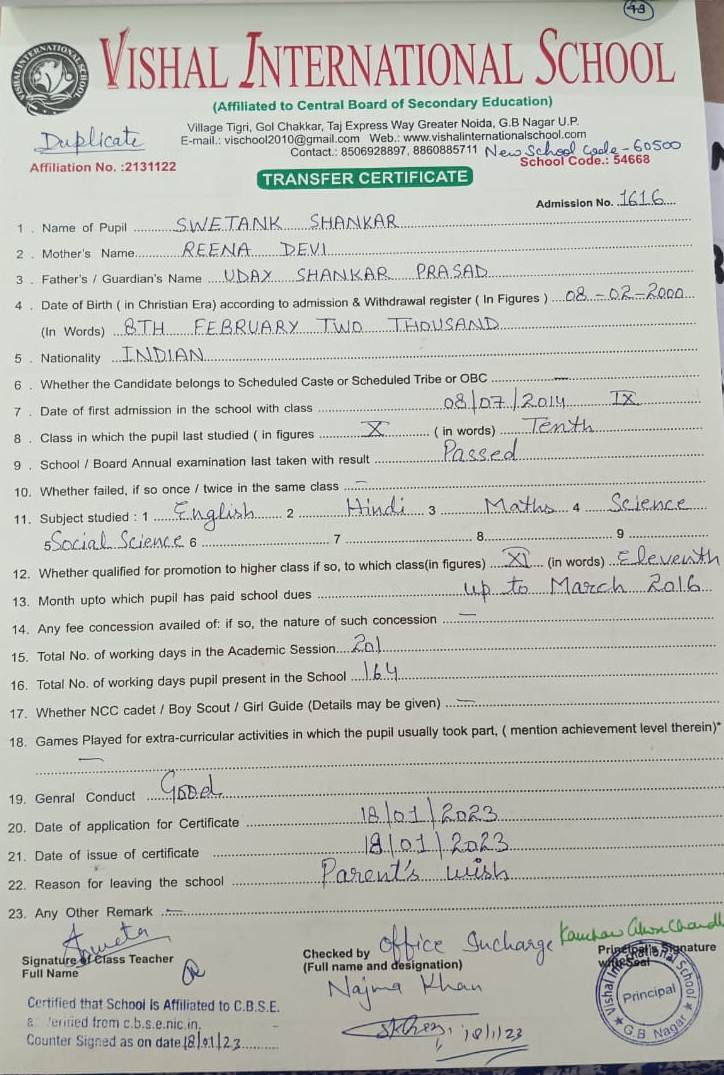 49
VISHAL INTERNATIONAL SCHOOL
VISHAL INTERNATIONAL SCHOOL
(Affiliated to Central Board of Secondary Education)
Village Tigri, Gol Chakkar, Taj Express Way Greater Noida, G.B Nagar U.P.
Duplicate E-mail.: vischool2010@gmail.com Web.: www.vishalinternationalschool.com
Contact.: 8506928897, 8860885711 New School Code - 60500
Affiliation No. :2131122 School Code.: 54668
TRANSFER CERTIFICATE
Admission No. 1616
1 . Name of Pupil SWETANK SHANKAR
2 . Mother's Name REENA DEVI
3 . Father's / Guardian's Name UDAY SHANKAR PRASAD
4 . Date of Birth ( in Christian Era) according to admission & Withdrawal register ( In Figures ) 08-02-2000
(In Words) 8TH FEBRUARY TWO THOUSAND
5 . Nationality INDIAN
6 . Whether the Candidate belongs to Scheduled Caste or Scheduled Tribe or OBC —
7 . Date of first admission in the school with class 08/07/2014 IX
8 . Class in which the pupil last studied ( in figures X ( in words) Tenth
9 . School / Board Annual examination last taken with result Passed
10. Whether failed, if so once / twice in the same class —
11. Subject studied : 1 English 2 Hindi 3 Maths 4 Science
5 Social Science 6 7 8. 9
12. Whether qualified for promotion to higher class if so, to which class(in figures) XI (in words) Eleventh
13. Month upto which pupil has paid school dues up to March 2016
14. Any fee concession availed of: if so, the nature of such concession —
15. Total No. of working days in the Academic Session 201
16. Total No. of working days pupil present in the School 164
17. Whether NCC cadet / Boy Scout / Girl Guide (Details may be given) —
18. Games Played for extra-curricular activities in which the pupil usually took part, ( mention achievement level therein)*
—
19. Genral Conduct Good
20. Date of application for Certificate 18/01/2023
21. Date of issue of certificate 18/01/2023
22. Reason for leaving the school Parent's wish
23. Any Other Remark —
Signature of Class Teacher
Full Name
Checked by Office Incharge
(Full name and designation)
Najma Khan
Principal's Signature
with Seal
Vishal International School
Principal
G.B. Nagar
Certified that School is Affiliated to C.B.S.E.
& Verified from c.b.s.e.nic.in.
Counter Signed as on date 18/01/23
18/1/23